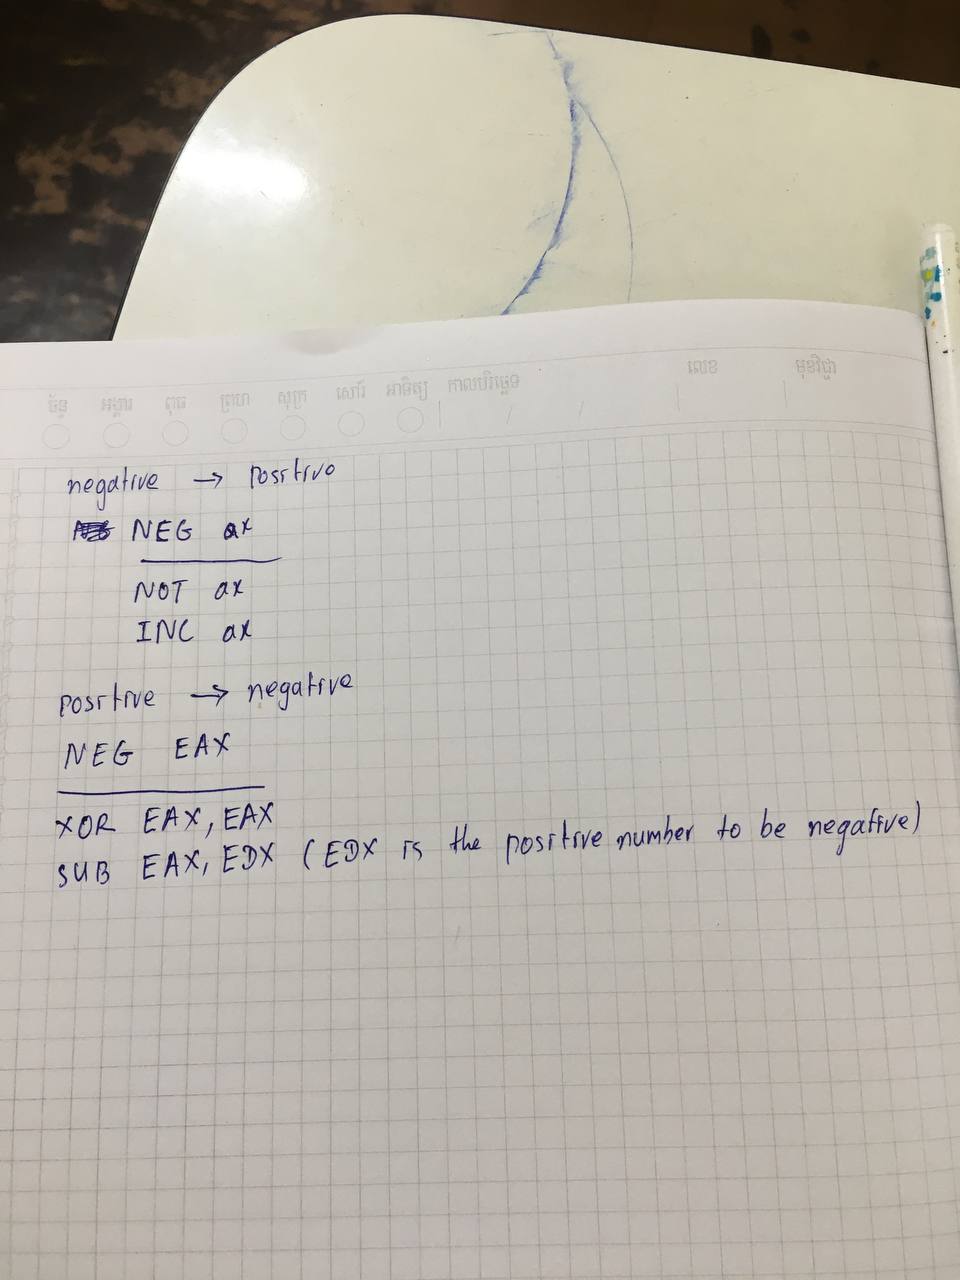 ច័ន្ទ អង្គារ ពុធ ព្រហ សុក្រ សៅរ៍ អាទិត្យ កាលបរិច្ឆេទ លេខ មុខវិជ្ជា
negative → positive
NEG ax
NOT ax
INC ax
positive → negative
NEG EAX
XOR EAX, EAX
SUB EAX, EDX (EDX is the positive number to be negative)